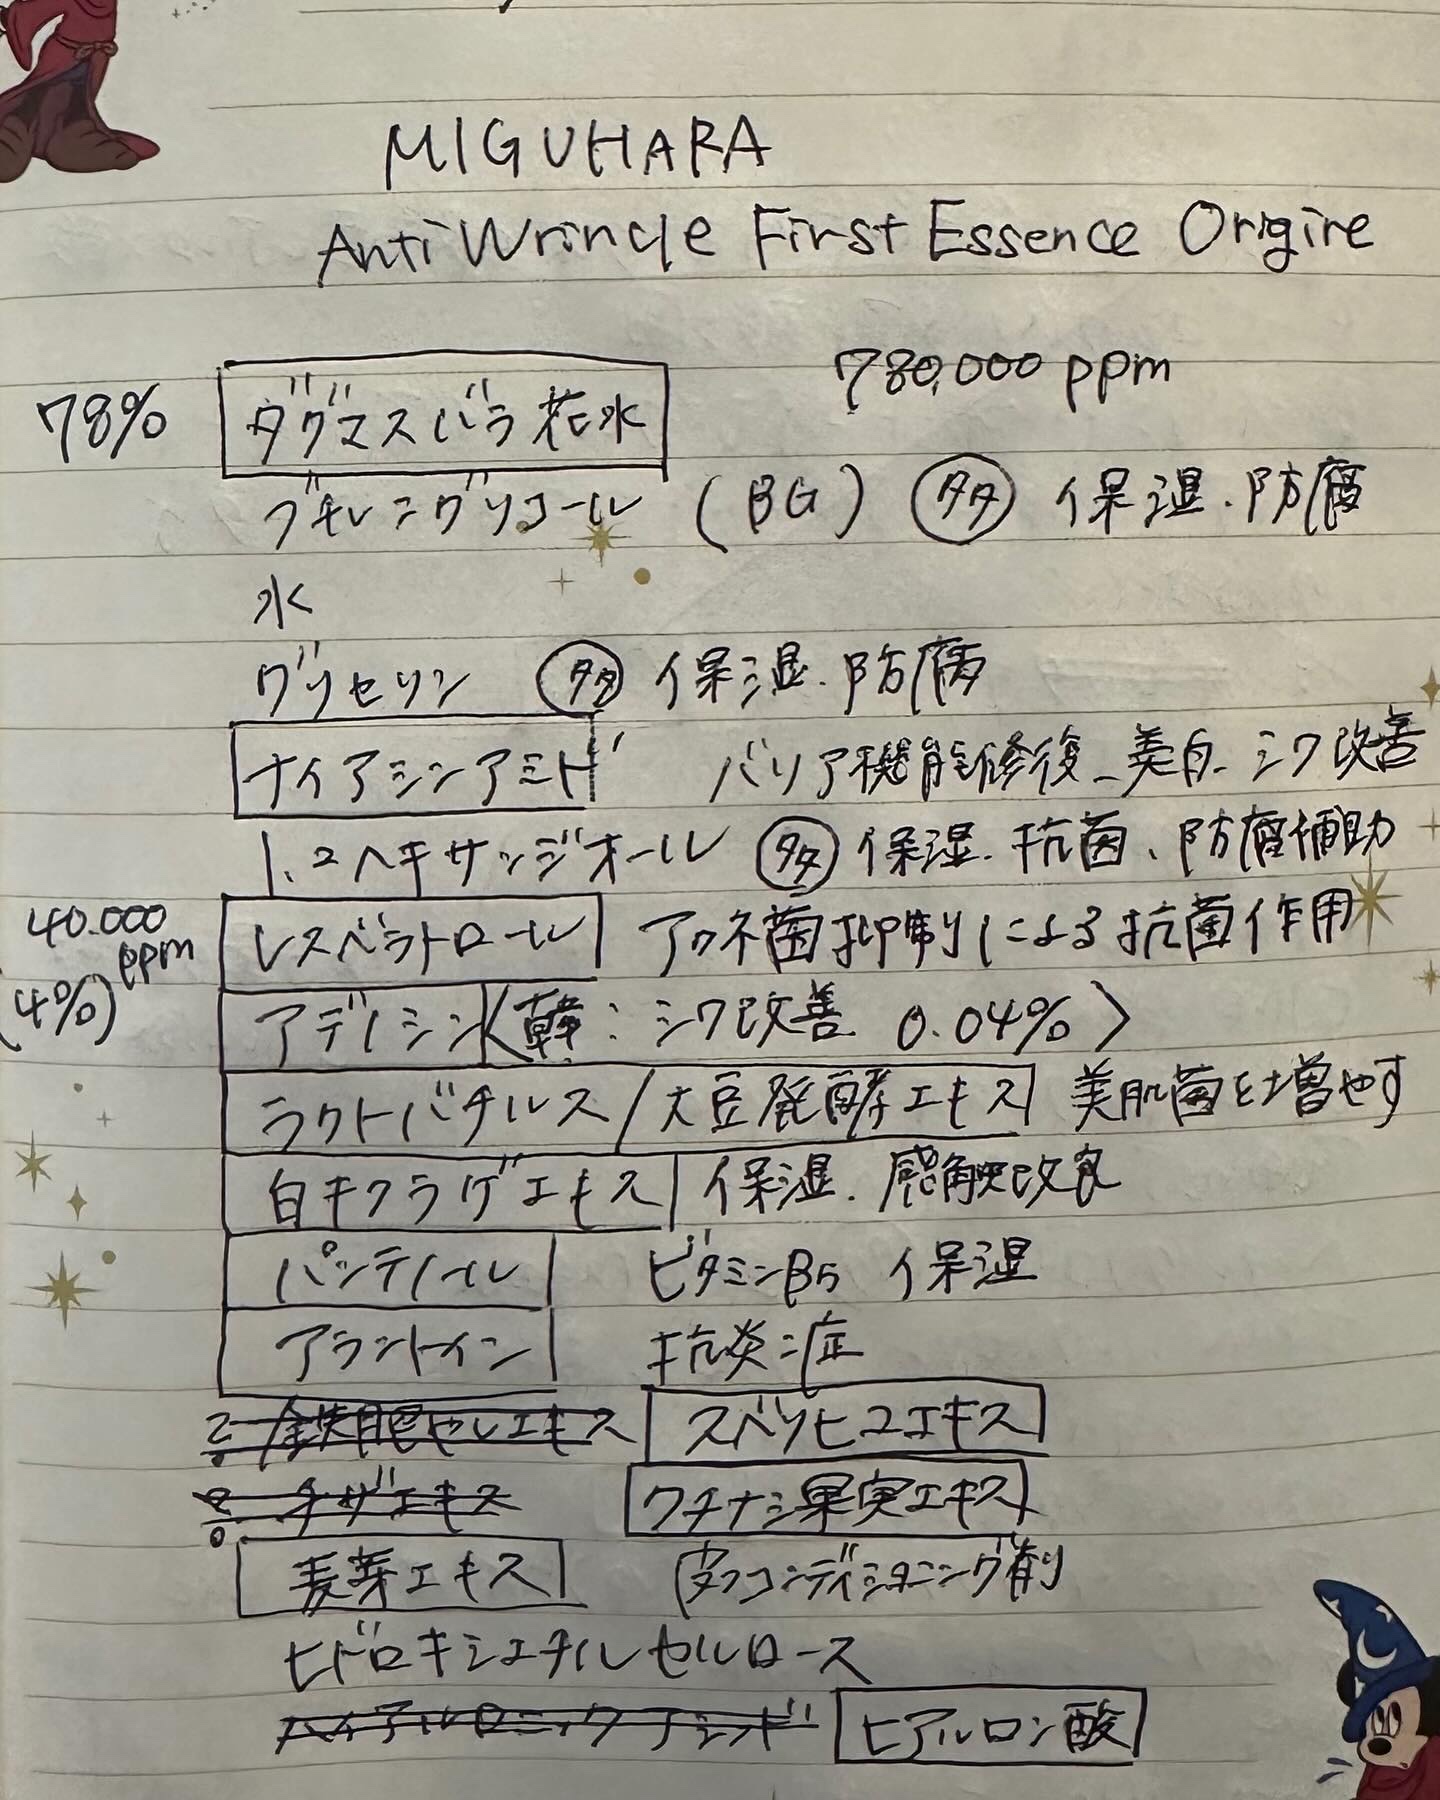 MIGUHARA
Anti Wrincle First Essence Origire
780,000 ppm
78% ダマスバラ花水
ブチレングリコール (BG) 多 保湿.防腐
水
グリセリン 多 保湿.防腐
ナイアシンアミド バリア機能修復_美白_シワ改善
1.2ヘキサンジオール 多 保湿.抗菌、防腐補助
40.000 ppm (4%) レスベラトロール アクネ菌抑制による抗菌作用
アデノシン〈韓:シワ改善 0.04%〉
ラクトバチルス/大豆発酵エキス 美肌菌を増やす
白キクラゲエキス 保湿.感触改良
パンテノール ビタミンB5 保湿
アラントイン 抗炎症
スベリヒユエキス
チザエキス クチナシ果実エキス
麦芽エキス 皮フコンディショニング剤
ヒドロキシエチルセルロース
ハイアルロニックアシッド ヒアルロン酸